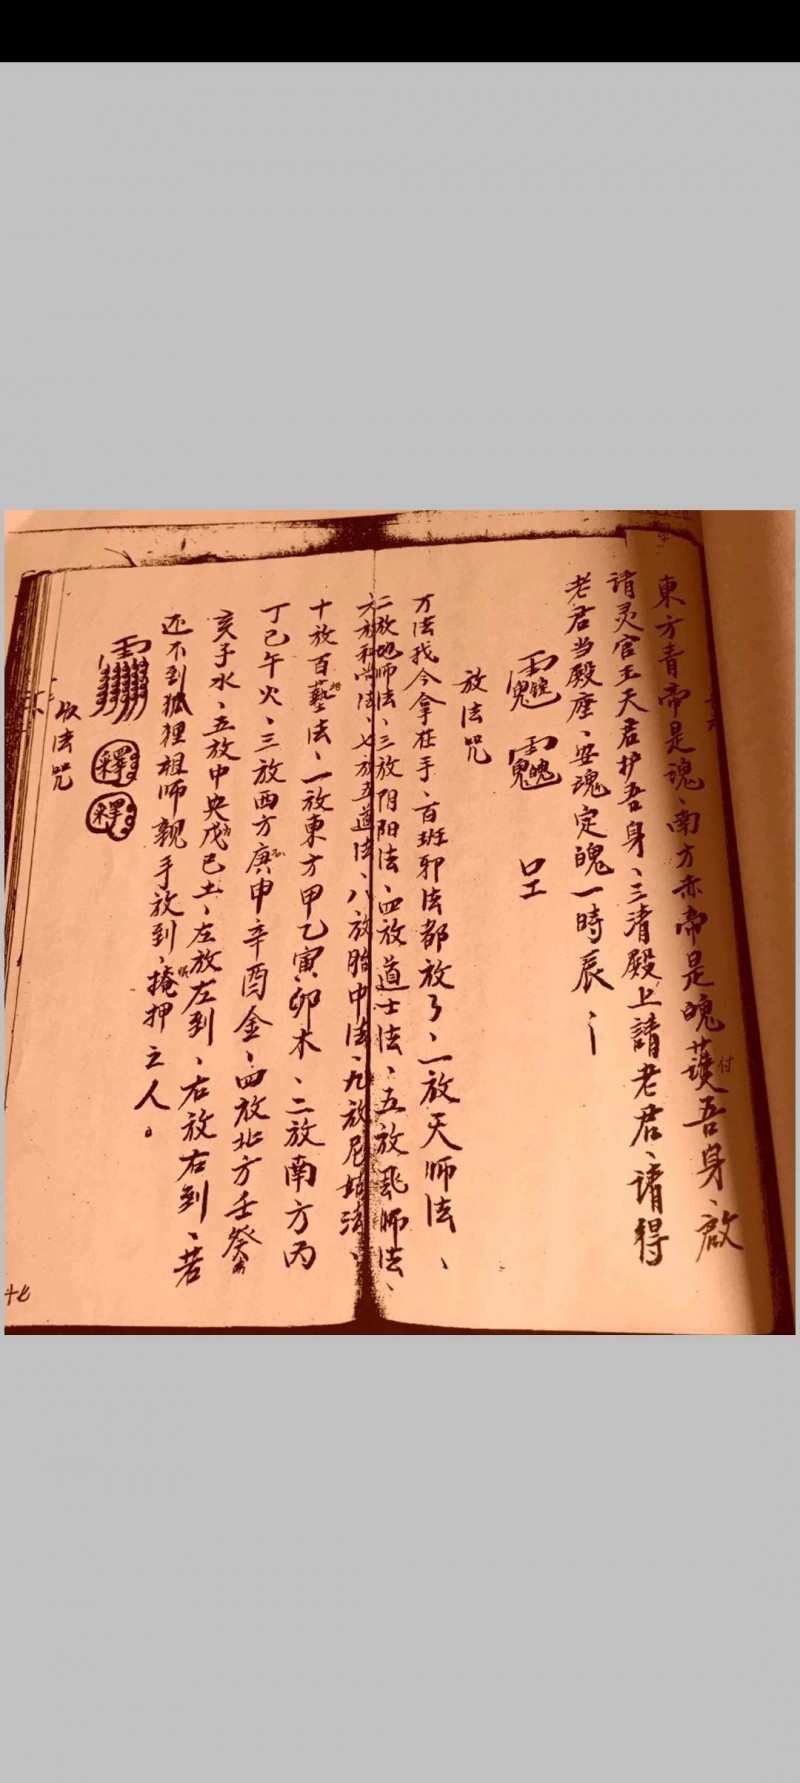 東方青帝是魂、南方赤帝是魄護吾身、啟
付
请灵官王天君护吾身、三清殿上請老君、请得
老君当殿座、安魂定魄一時辰、
放法咒
万法我今拿在手、百班邪法都放了、一放天师法、
二放地师法、三放阴阳法、四放道士法、五放巫师法、
六放和尚法、七放五道法、八放胎中法、九放尼姑法、
十放百藝法、一放東方甲乙寅卯木、二放南方丙
丁己午火、三放西方庚申辛酉金、四放北方壬癸
亥子水、五放中央戊己土、左放左到、右放右到、若
还不到狐狸祖师親手放到、掩押之人。
釋
釋
收法咒
十七